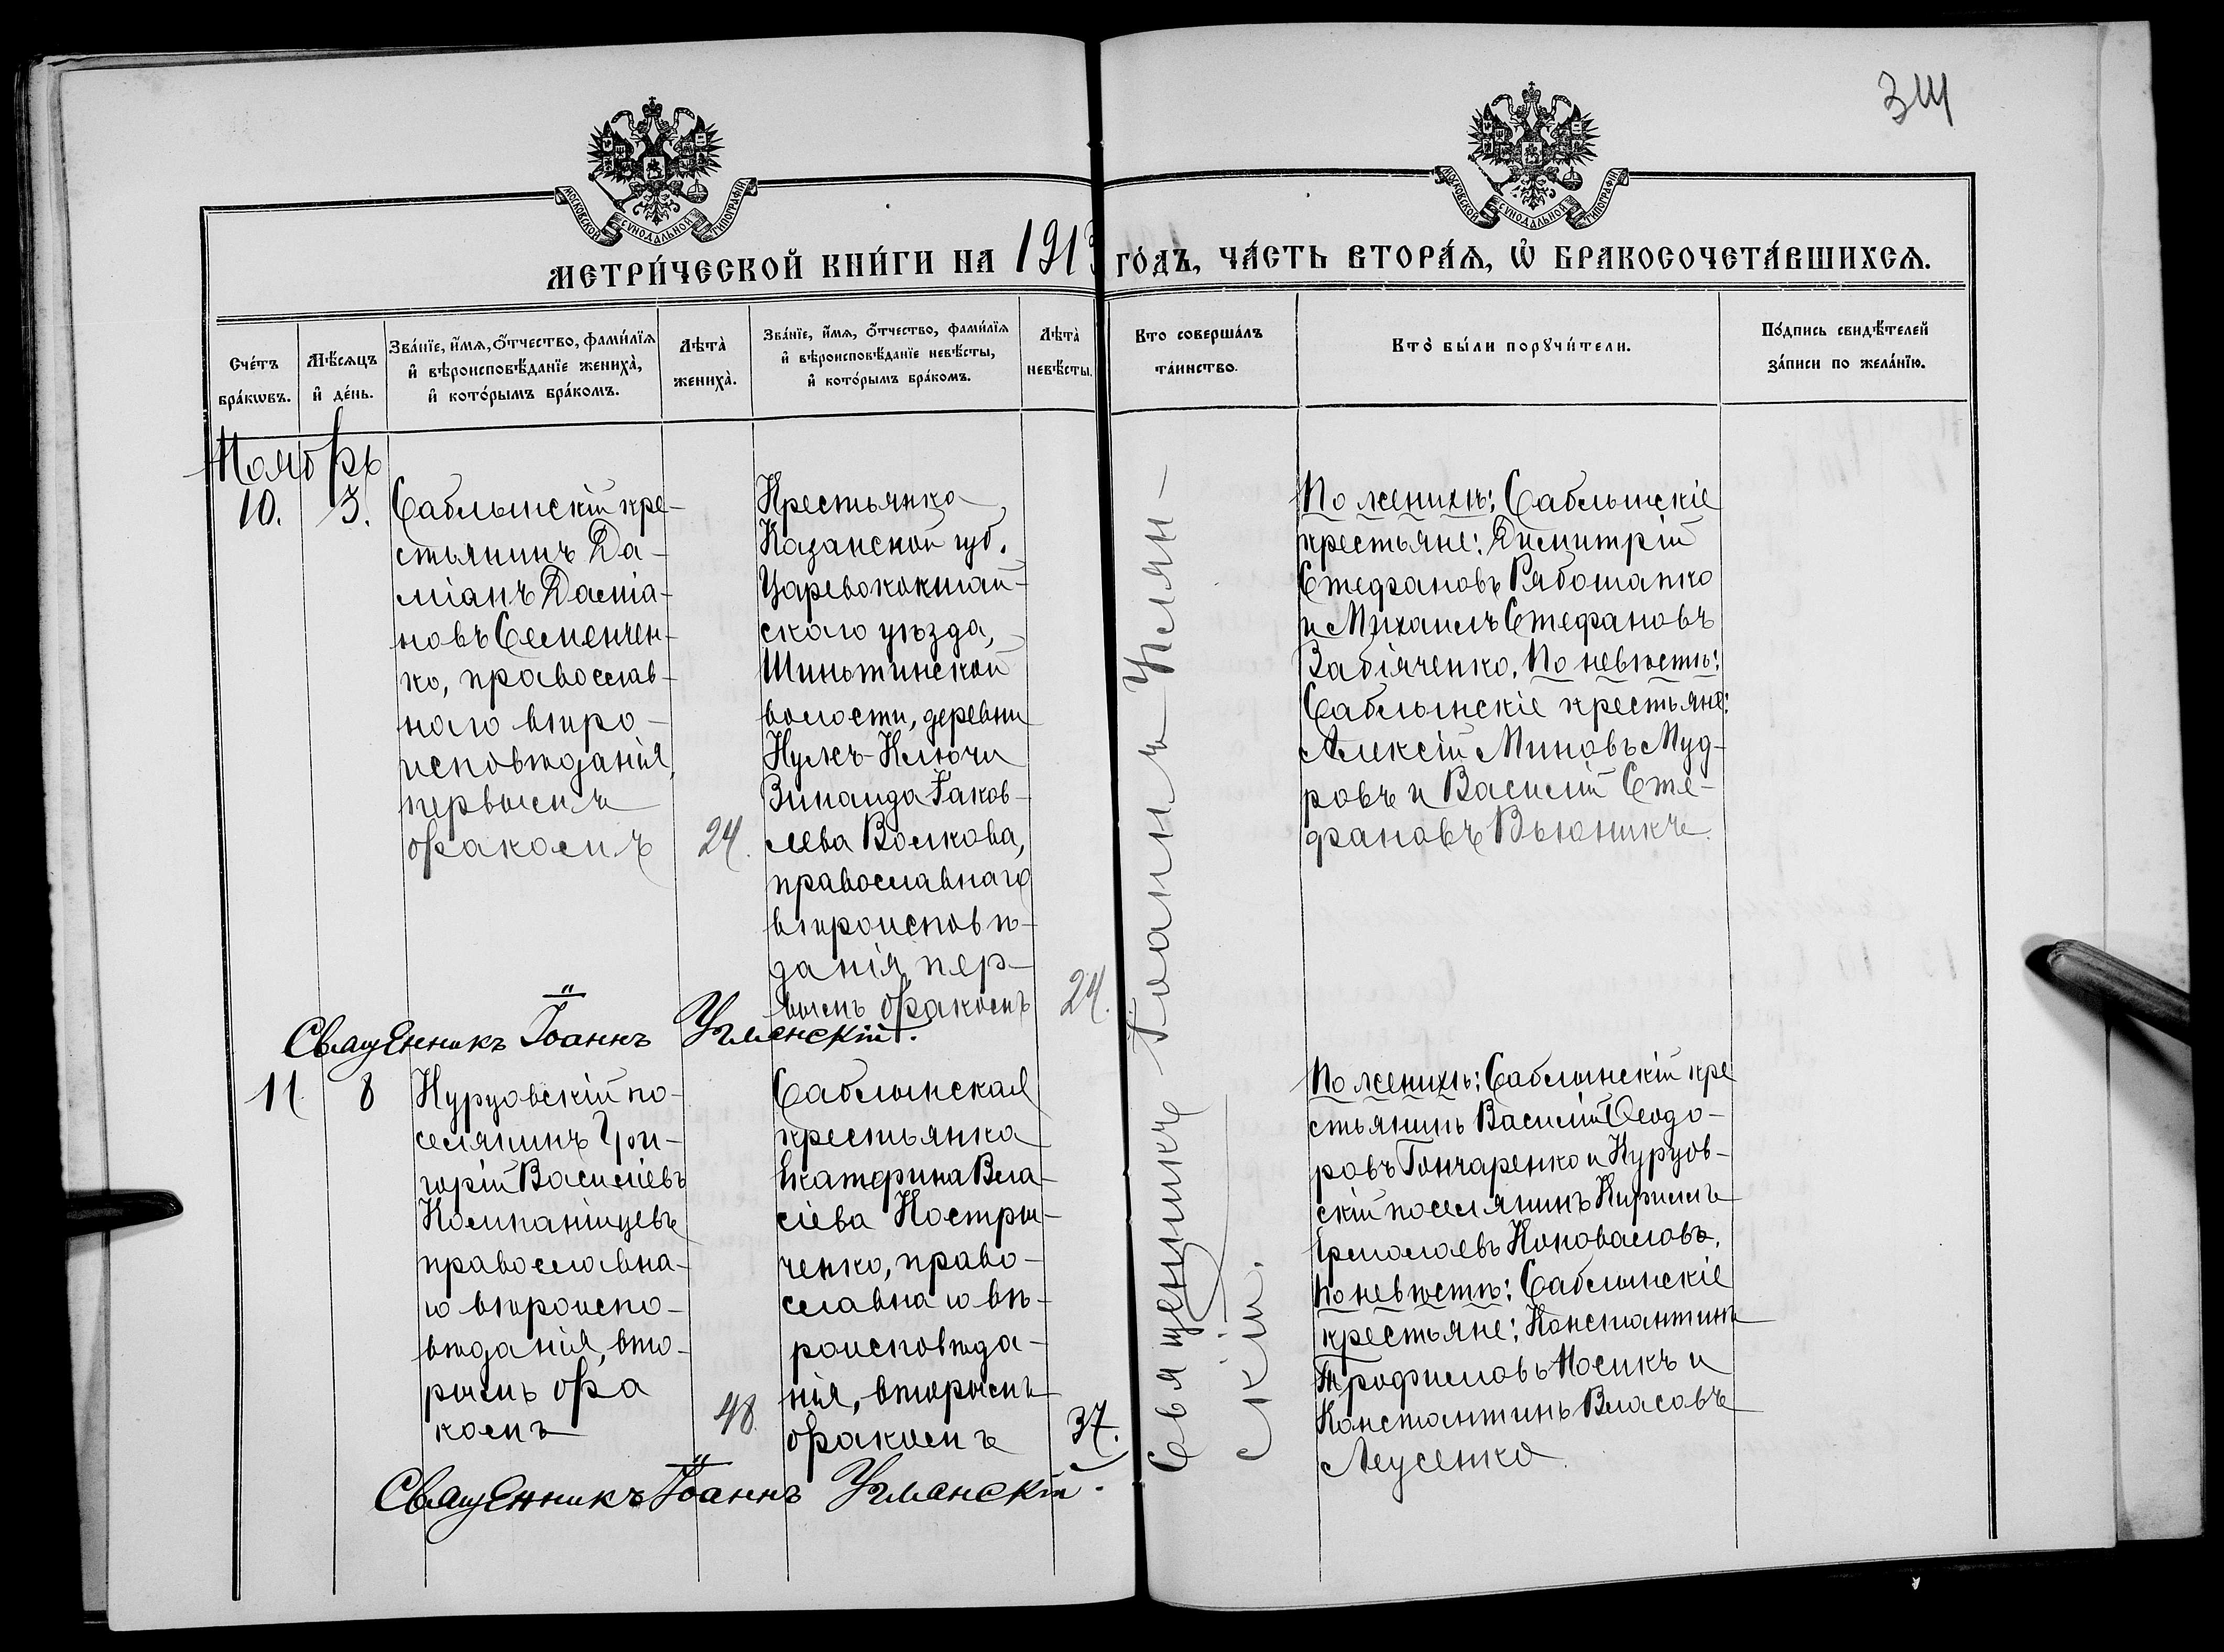 311
МОСКОВСКОЙ СѴНОДАЛЬНОЙ ТИПОГРАФІИ.
МОСКОВСКОЙ СѴНОДАЛЬНОЙ ТИПОГРАФІИ.
МЕТРИ́ЧЕСКОЙ КНИ́ГИ НА 1913 ГО́ДЪ, ЧА́СТЬ ВТОРА́Ѧ, Ѡ҆ БРАКОСОЧЕТА́ВШИХСѦ.
Сче́тъ
бра́кѡвъ.
Мѣ́сяцъ
и҆ де́нь.
Зва́нїе, и҆́мя, ѻ҆́тчество, фами́лїя
и҆ вѣроисповѣ́данїе жениха̀,
и҆ кото́рымъ бра́комъ.
Лѣта̀
жениха̀.
Зва́нїе, и҆́мя, ѻ҆́тчество, фами́лїя
и҆ вѣроисповѣ́данїе невѣ́сты,
и҆ кото́рымъ бра́комъ.
Лѣта̀
невѣ́сты.
Кто совершáлъ
та́инство.
Кто̀ бы́ли порꙋчи́тели.
По́дпись свидѣ́телей
за́писи по жела́нїю.
Ноябрь
10.
3.
Саблынскій кре-
стьянинъ Да-
міанъ Даміа-
новъ Семенчен-
ко, православ-
наго вѣро-
исповѣданія,
первымъ
бракомъ
24.
Крестьянка
Казанской губ.
Царевококшай-
скаго уѣзда,
Шиньшинской
волости, деревни
Кужъ-Ключи
Зинаида Іаков-
лева Волкова,
православнаго
вѣроисповѣ-
данія, пер-
вымъ бракомъ
24.
Священникъ Іоаннъ Уклян-
скій.
По женихѣ: Саблынскіе
крестьяне: Димитрій
Стефановъ Рябошапко
и Михаилъ Стефановъ
Забіяченко. По невѣстѣ:
Саблынскіе крестьяне:
Алексій Миновъ Муд-
ровъ и Василій Сте-
фановъ Вьюникъ.
Священникъ Іоаннъ
11.
8
Курцовскій по-
селянинъ Гри-
горій Василіевъ
Компанійцевъ
православна-
го вѣроиспо-
вѣданія, вто-
рымъ бра
комъ
48.
Саблынская
крестьянка
Екатерина Вла-
сіева Костры-
ченко, право-
славнаго вѣ-
роисповѣда-
нія, вторымъ
бракомъ
37.
По женихѣ: Саблынскій кре
стьянинъ Василій Ѳеодо-
ровъ Гончаренко и Курцов-
скій поселянинъ Кириллъ
Ермолаевъ Коноваловъ.
По невѣстѣ: Саблынскіе
крестьяне: Константинъ
Трофимовъ Носикъ и
Константинъ Власовъ
Леусенко.
Священникъ Іоаннъ